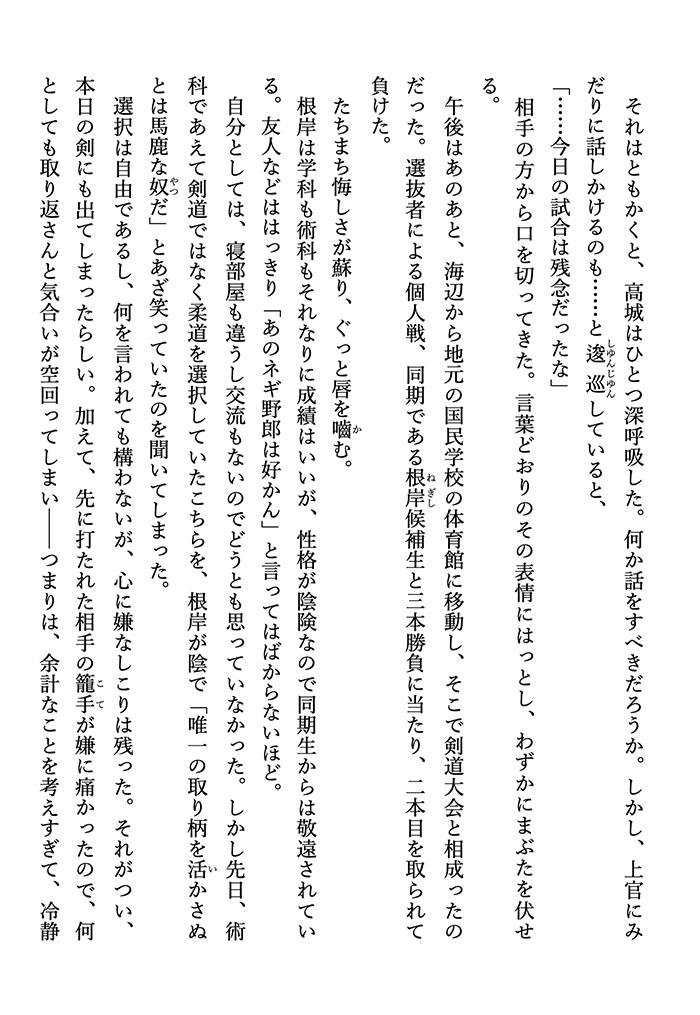 それはともかくと、高城はひとつ深呼吸した。何か話をすべきだろうか。しかし、上官にみ
だりに話しかけるのも……と逡巡しゆんじゆんしていると、
「……今日の試合は残念だったな」
相手の方から口を切ってきた。言葉どおりのその表情にはっとし、わずかにまぶたを伏せ
る。
午後はあのあと、海辺から地元の国民学校の体育館に移動し、そこで剣道大会と相成ったの
だった。選抜者による個人戦、同期である根岸ねぎし候補生と三本勝負に当たり、二本目を取られて
負けた。
たちまち悔しさが蘇り、ぐっと唇を嚙かむ。
根岸は学科も術科もそれなりに成績はいいが、性格が陰険なので同期生からは敬遠されてい
る。友人などははっきり「あのネギ野郎は好かん」と言ってはばからないほど。
自分としては、寝部屋も違うし交流もないのでどうとも思っていなかった。しかし先日、術
科であえて剣道ではなく柔道を選択していたこちらを、根岸が陰で「唯一の取り柄を活いかさぬ
とは馬鹿な奴やつだ」とあざ笑っていたのを聞いてしまった。
選択は自由であるし、何を言われても構わないが、心に嫌なしこりは残った。それがつい、
本日の剣にも出てしまったらしい。加えて、先に打たれた相手の籠手こてが嫌に痛かったので、何
としても取り返さんと気合いが空回ってしまい――つまりは、余計なことを考えすぎて、冷静